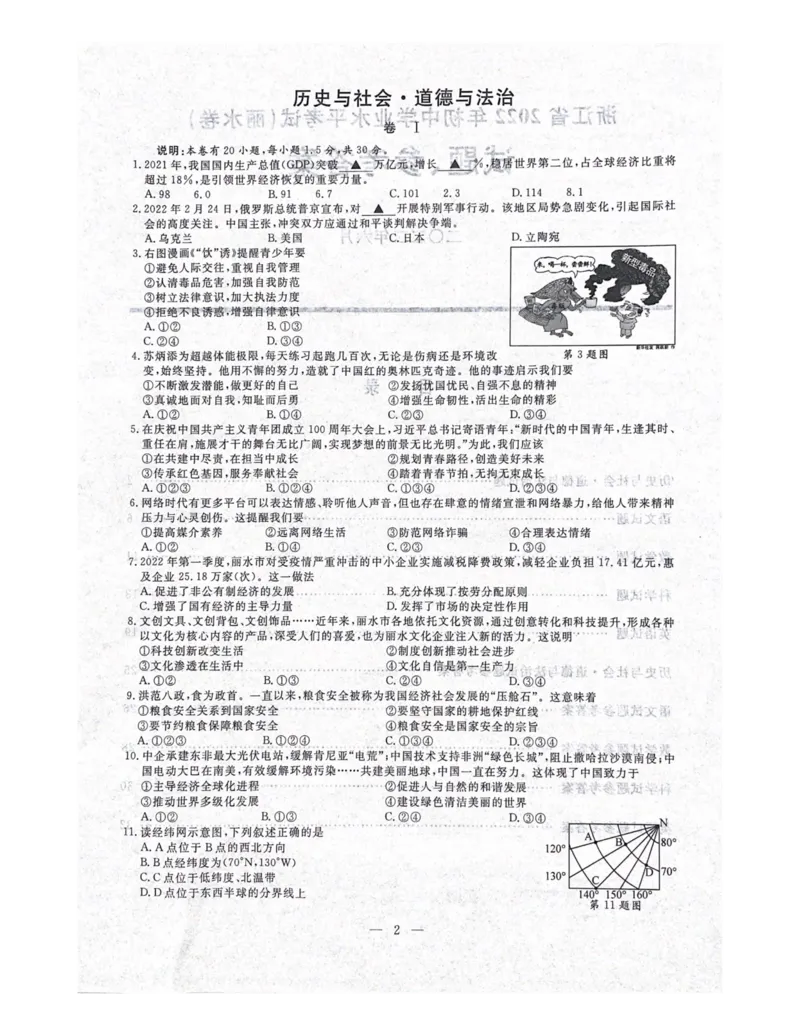 历史与社会·道德与法治
卷 Ⅰ
说明:本卷有20小题,每小题1.5分,共30分。
1.2021年,我国国内生产总值(GDP)突破 ▲ 万亿元,增长 ▲ %,稳居世界第二位,占全球经济比重将
超过18%,是引领世界经济恢复的重要力量。
A.98 6.0 B.91 6.7 C.101 2.3 D.114 8.1
2.2022年2月24日,俄罗斯总统普京宣布,对 ▲ 开展特别军事行动。该地区局势急剧变化,引起国际社
会的高度关注。中国主张,冲突双方应通过和平谈判解决争端。
A.乌克兰 B.美国 C.日本 D.立陶宛
3.右图漫画《“饮”诱》提醒青少年要
①避免人际交往,重视自我管理
②认清毒品危害,加强自我防范
③树立法律意识,加大执法力度
④拒绝不良诱惑,增强自律意识
A.①② B.①③
C.②④ D.③④
来,喝一杯,尝尝鲜!
新型毒品
第3题图
4.苏炳添为超越体能极限,每天练习起跑几百次,无论是伤病还是环境改
变,始终坚持。他用不懈的努力,造就了中国红的奥林匹克奇迹。他的事迹启示我们要
①不断激发潜能,做更好的自己 ②发扬忧国忧民、自强不息的精神
③真诚地面对自我,知耻而后勇 ④增强生命韧性,活出生命的精彩
A.①② B.①④ C.②③ D.③④
5.在庆祝中国共产主义青年团成立100周年大会上,习近平总书记寄语青年:“新时代的中国青年,生逢其时、
重任在肩,施展才干的舞台无比广阔,实现梦想的前景无比光明。”为此,我们应该
①在共建中尽责,在担当中成长 ②规划青春路径,创造美好未来
③传承红色基因,服务奉献社会 ④踏着青春节拍,无拘无束成长
A.①②③ B.①②④ C.①③④ D.②③④
6.网络时代有更多平台可以表达情感、聆听他人声音,但也存在肆意的情绪宣泄和网络暴力,给他人带来精神
压力与心灵创伤。这提醒我们要
①提高媒介素养 ②远离网络生活 ③防范网络诈骗 ④合理表达情绪
A.①② B.①④ C.②③ D.③④
7.2022年第一季度,丽水市对受疫情严重冲击的中小企业实施减税降费政策,减轻企业负担17.41亿元,惠
及企业25.18万家(次)。这一做法
A.促进了非公有制经济的发展 B.充分体现了按劳分配原则
C.增强了国有经济的主导力量 D.发挥了市场的决定性作用
8.文创文具、文创背包、文创饰品……近年来,丽水市各地依托文化资源,通过创意转化和科技提升,形成各种
以文化为核心内容的产品,深受人们的喜爱,也为丽水文化企业注入新的活力。这说明
①科技创新改变生活 ②制度创新推动社会进步
③文化渗透在生活中 ④文化自信是第一生产力
A.①② B.①③ C.②④ D.③④
9.洪范八政,食为政首。一直以来,粮食安全被称为我国经济社会发展的“压舱石”。这意味着
①粮食安全关系到国家安全 ②要坚守国家的耕地保护红线
③要节约粮食保障粮食安全 ④粮食安全是国家安全的宗旨
A.①②③ B.①②④ C.①③④ D.②③④
10.中企承建东非最大光伏电站,缓解肯尼亚“电荒”;中国技术支持非洲“绿色长城”,阻止撒哈拉沙漠南侵;中
国电动大巴在南美,有效缓解环境污染……共建美丽地球,中国一直在努力。这体现了中国致力于
①主导经济全球化进程 ②促进人与自然的和谐发展
③推动世界多级化发展 ④建设绿色清洁美丽的世界
A.①② B.①③ C.②④ D.③④
11.读经纬网示意图,下列叙述正确的是
A.A点位于B点的西北方向
B.B点经纬度为(70°N,130°W)
C.C点位于低纬度、北温带
D.D点位于东西半球的分界线上
N
A
B 80°
120°
D 70°
130° C
140° 150° 160°
第11题图
— 2 —